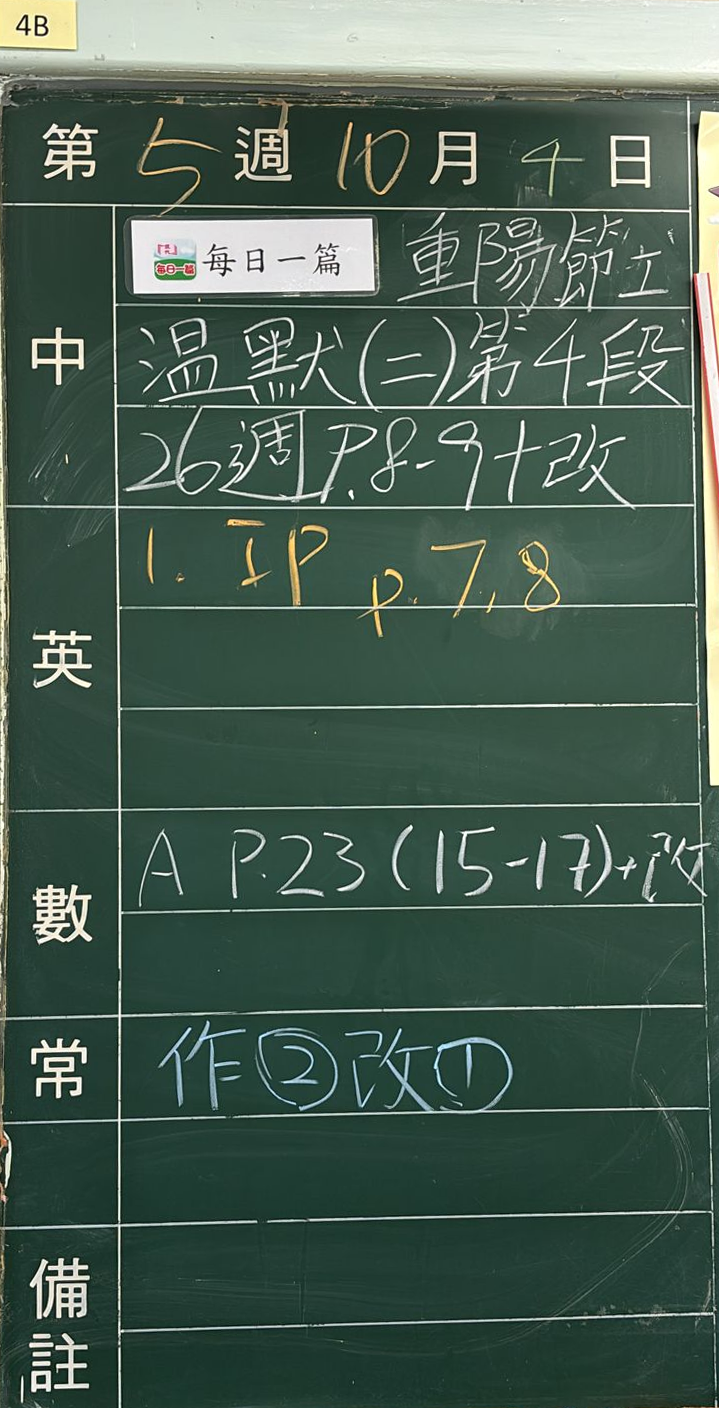 4B
第5週10月4日
中
每日一篇 每日一篇 重陽節工
溫默(二)第4段
26週P.8-9+改
英
1. IP p.7,8
數
A P.23(15-17)+改
常
作②改①
備註